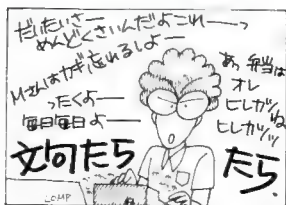 だいたいさー
めんどくさいんだよこれーーっ
Mさんはカギ忘れるしよー
ったくよーー
毎日毎日よーー
文句たら
あっ 弁当は
オレ
ヒレカツね
ヒレカツッ
たら。
LOMP